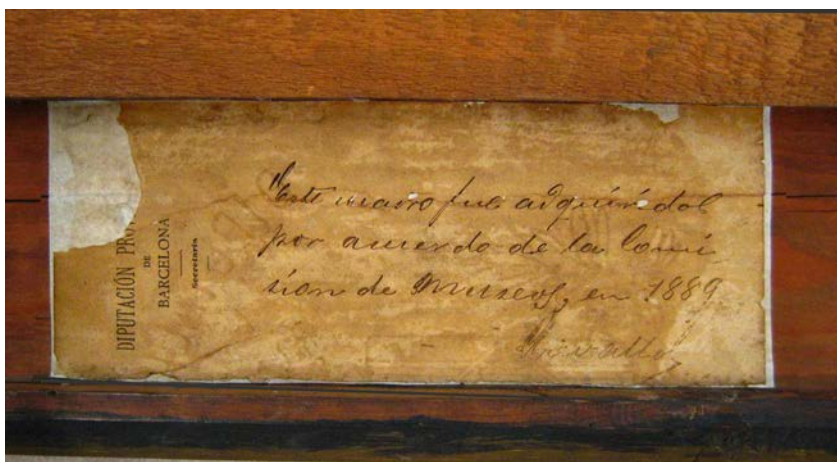 DIPUTACIÓN PRO
DE
BARCELONA
Secretaría
Este fue adquirido
por acuerdo de la Comi
sion de Museos, en 1889